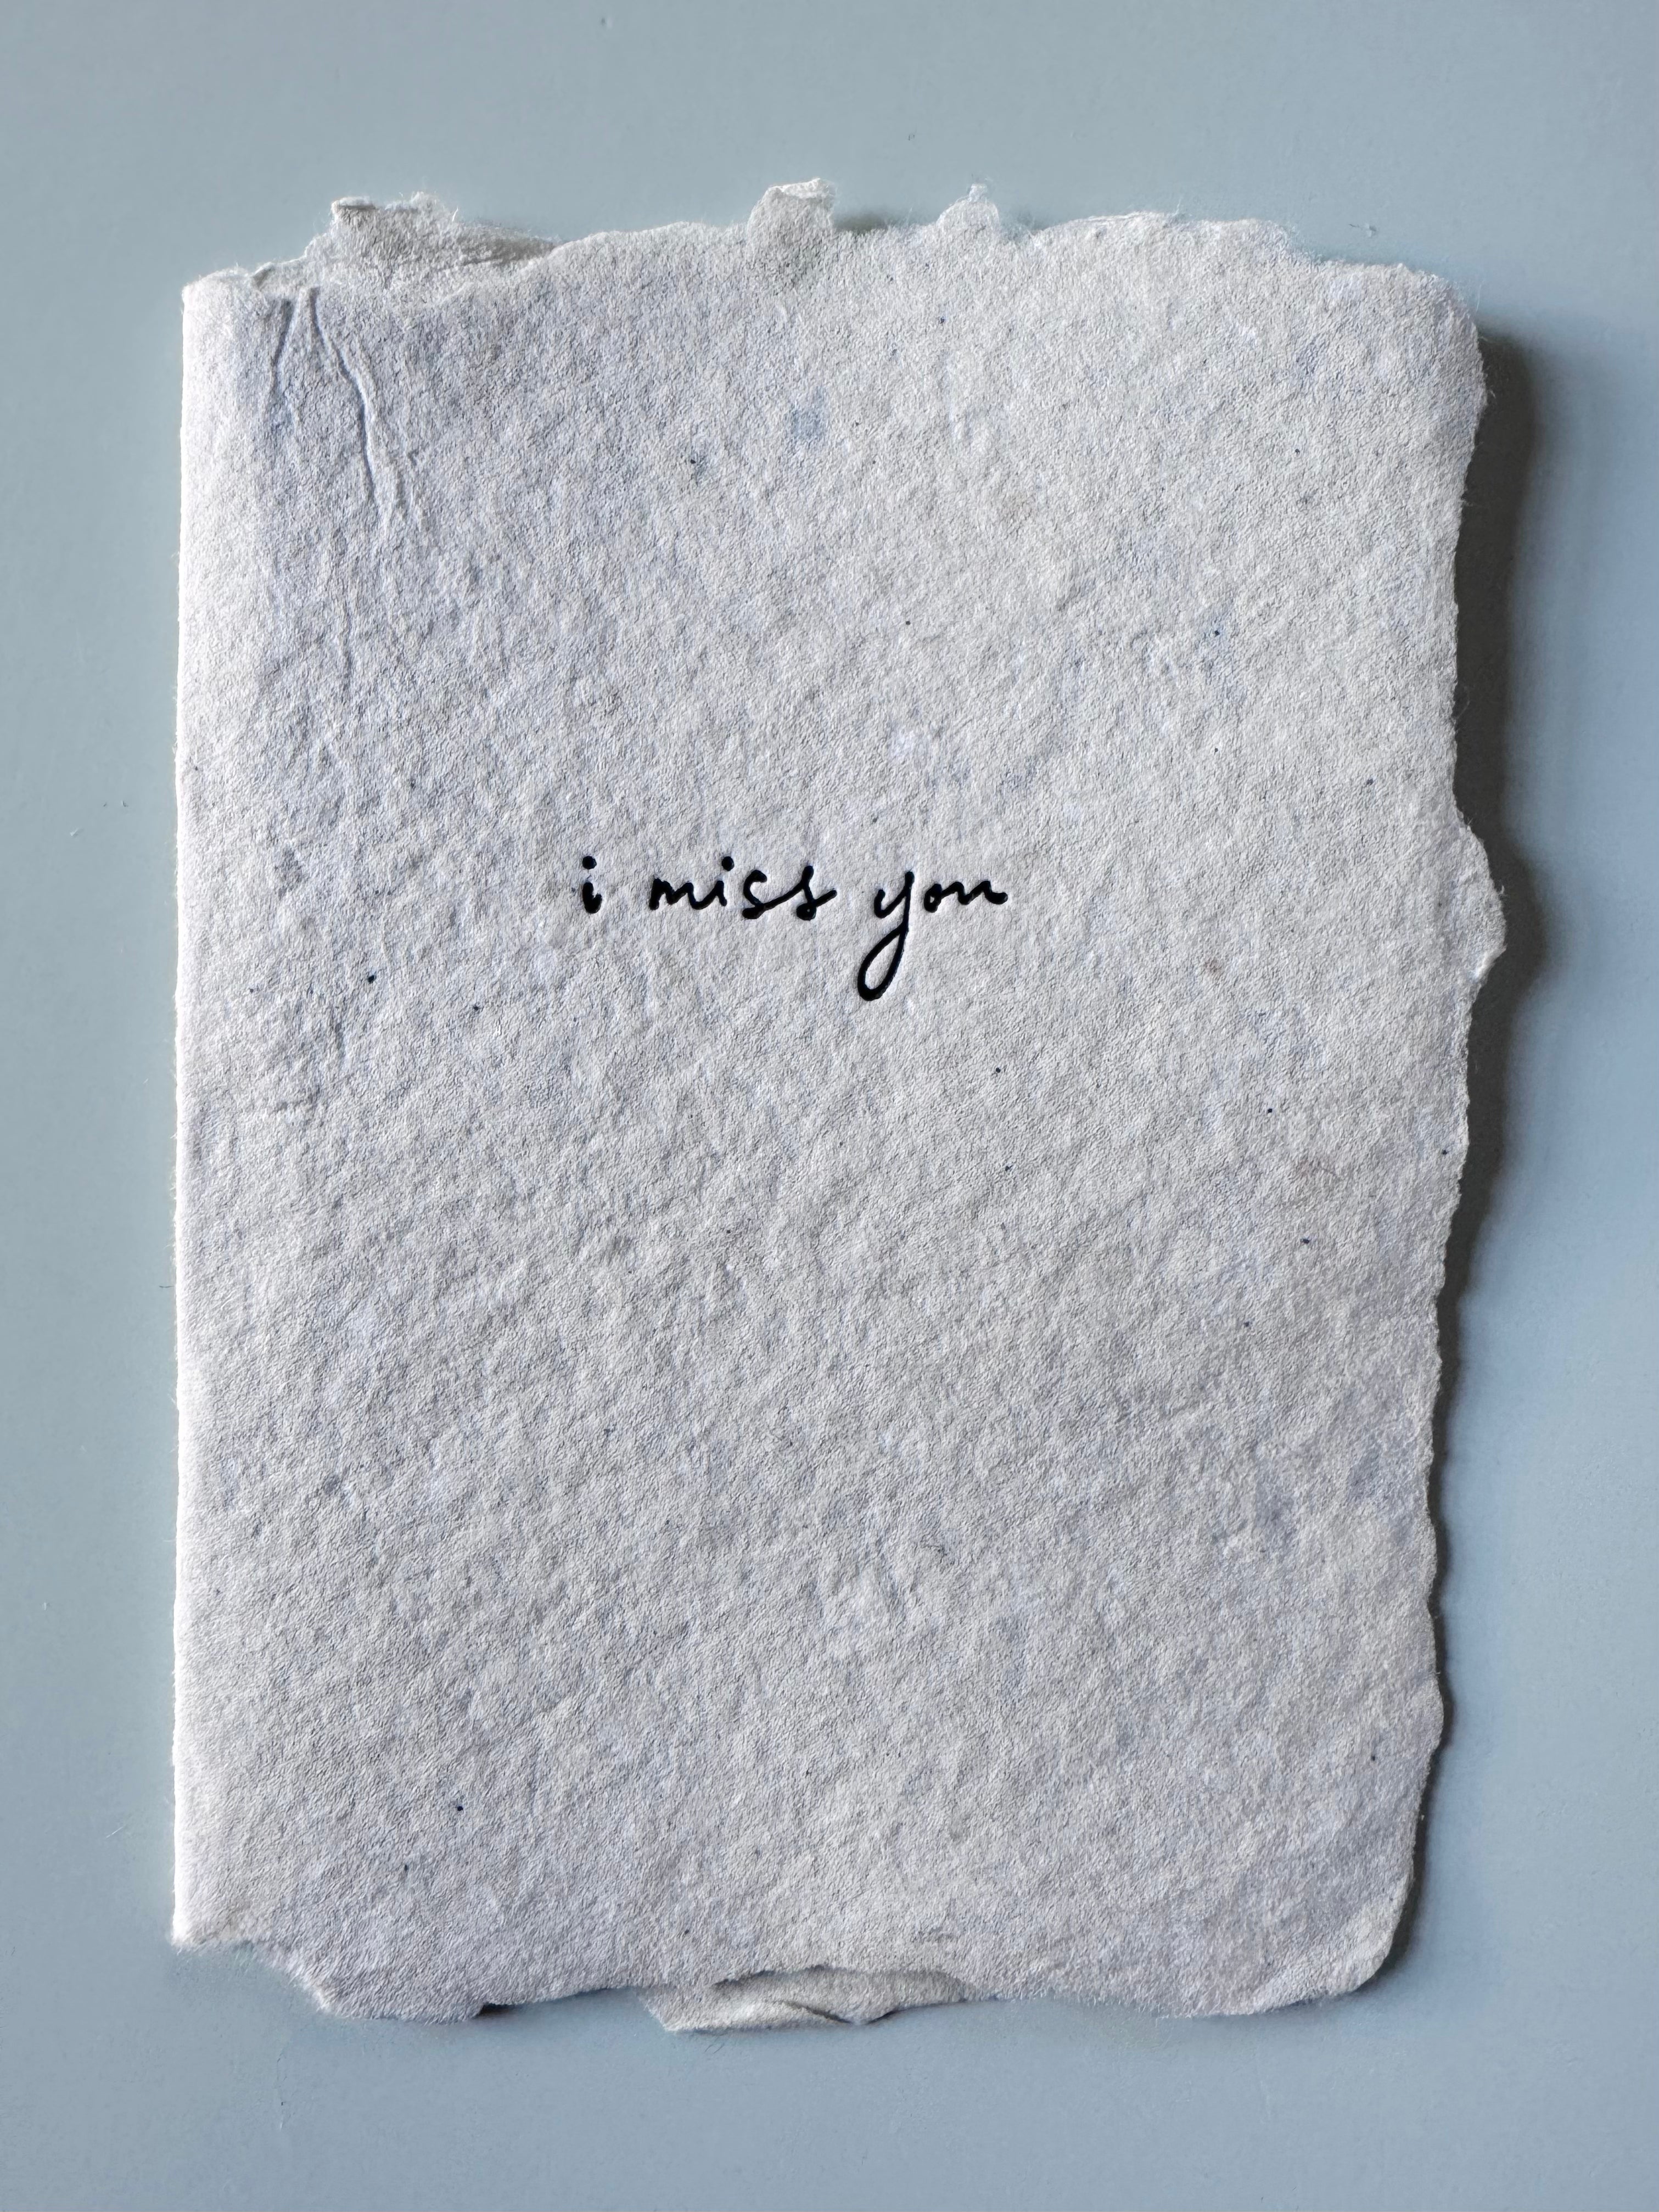 i miss you